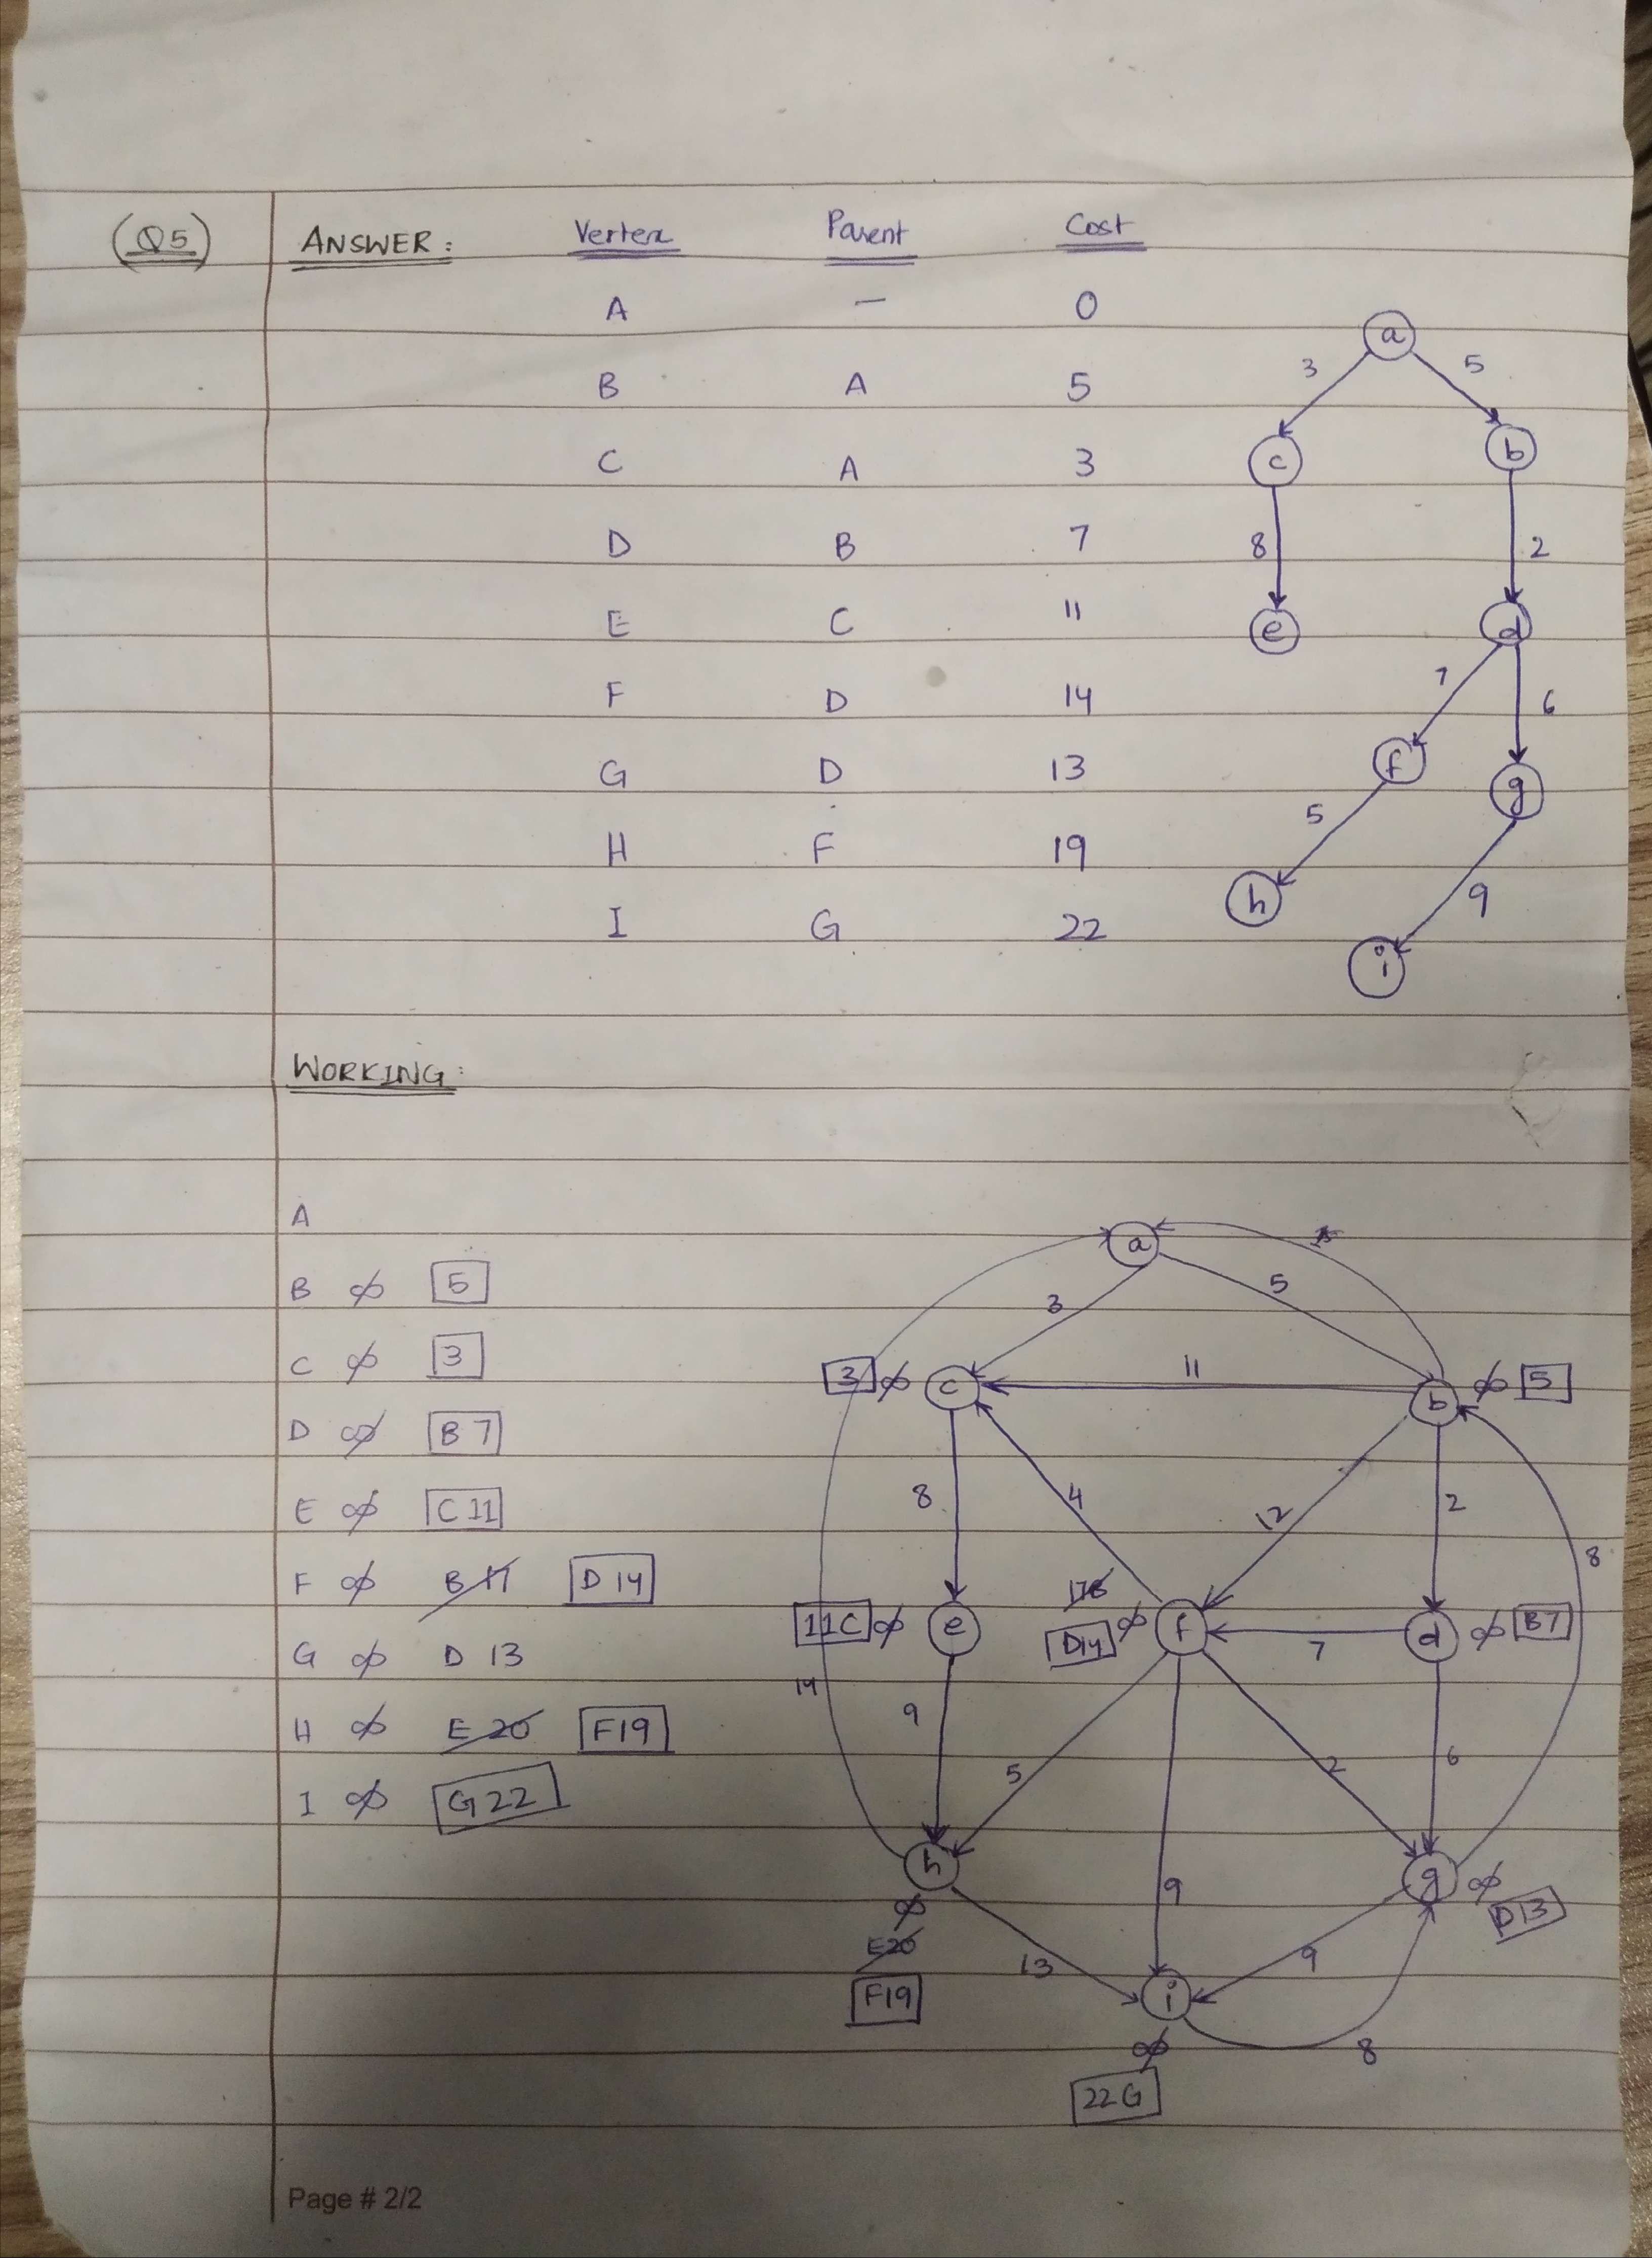 (Q5) ANSWER: Vertex Parent Cost
A — 0
B A 5
C A 3
D B 7
E C 11
F D 14
G D 13
H F 19
I G 22
a
3 5
c b
8 2
e d
7 6
f g
5 9
h i
WORKING:
A
B ∞ 5
C ∞ 3
D ∞ B 7
E ∞ C 11
F ∞ B 17 D 14
G ∞ D 13
H ∞ E 20 F19
I ∞ G 22
a
3 5
3 ∞ c 11 b ∞ 5
8 4 12 2 8
17B
11C ∞ e D14 ∞ f 7 d ∞ B7
14 9 5 9 2 6
h g ∞
∞ D13
E20
F19
13 9
i
∞ 8
22 G
Page # 2/2